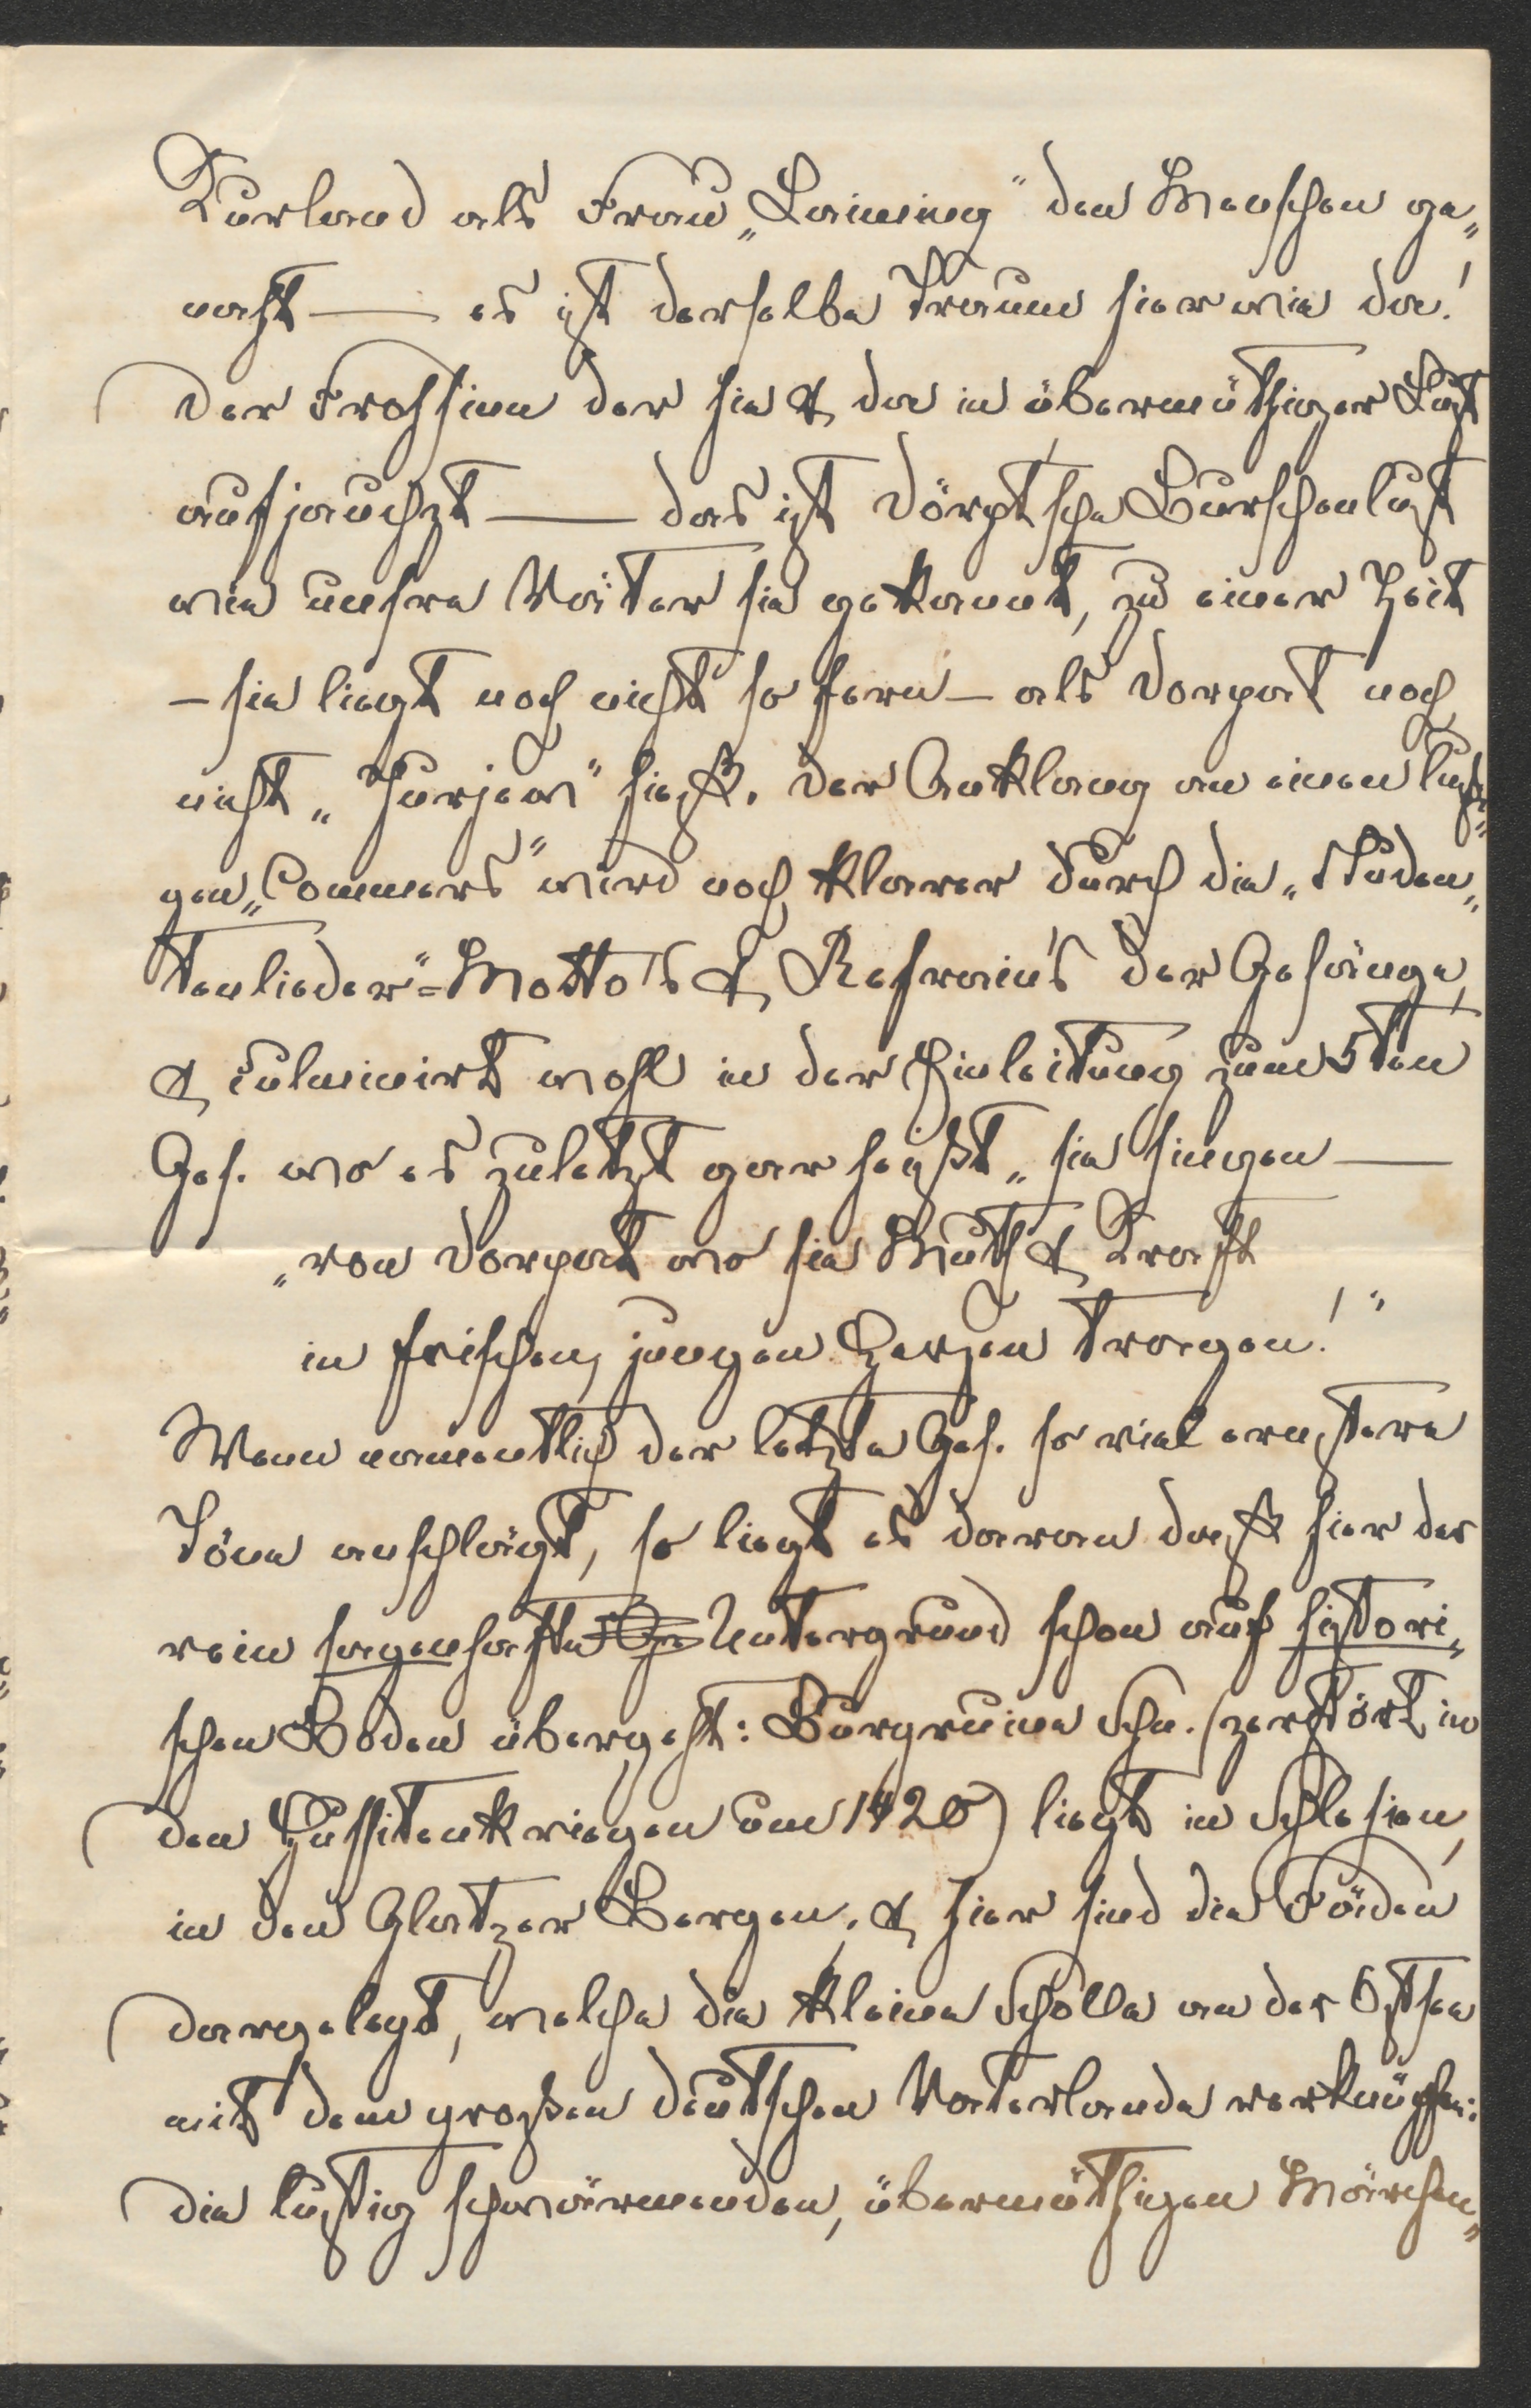 Kurland als Frau „Laiming" den Menschen ge„
naht — es ist derselbe Traum hier wie da!
Der Frohsinn der hie & da in übermüthiger Lust
aufjauchzt — das ist dörpt'sche Burschenlust
wie unsre Väter sie gekannt, zu einer Zeit
– sie liegt noch nicht so fern – als Dorpat noch
nicht „Jurjew" hieß. Der Anklang an einen lusti„
gen „Commers" wird noch klarer durch die „Studen„
tenlieder"=Motto's & Refrain's der Gesänge,
& culminirt wohl in der Einleitung zum 5ten
Ges. wo es zuletzt gar heißt „sie singen —
„von Dorpat wo sie Muth & Kraft
in frischen, jungen Herzen tragen!"
Wenn namentlich der letzte Ges. so viel ernstere
Töne anschlägt, so liegt es daran daß hier der
rein sagenhafte Untergrund schon auf histori„
schen Boden übergeht: Burgruine Schn. (zerstört in
den Hussitenkriegen um 1420) liegt in Schlesien,
in den Glatzer Bergen, & hier sind die Fäden
dargelegt, welche die kleine Scholle an der Ostsee
mit dem großen deutschen Vaterlande verknüpfen:
die lustig schwärmenden, übermüthigen Märchen„